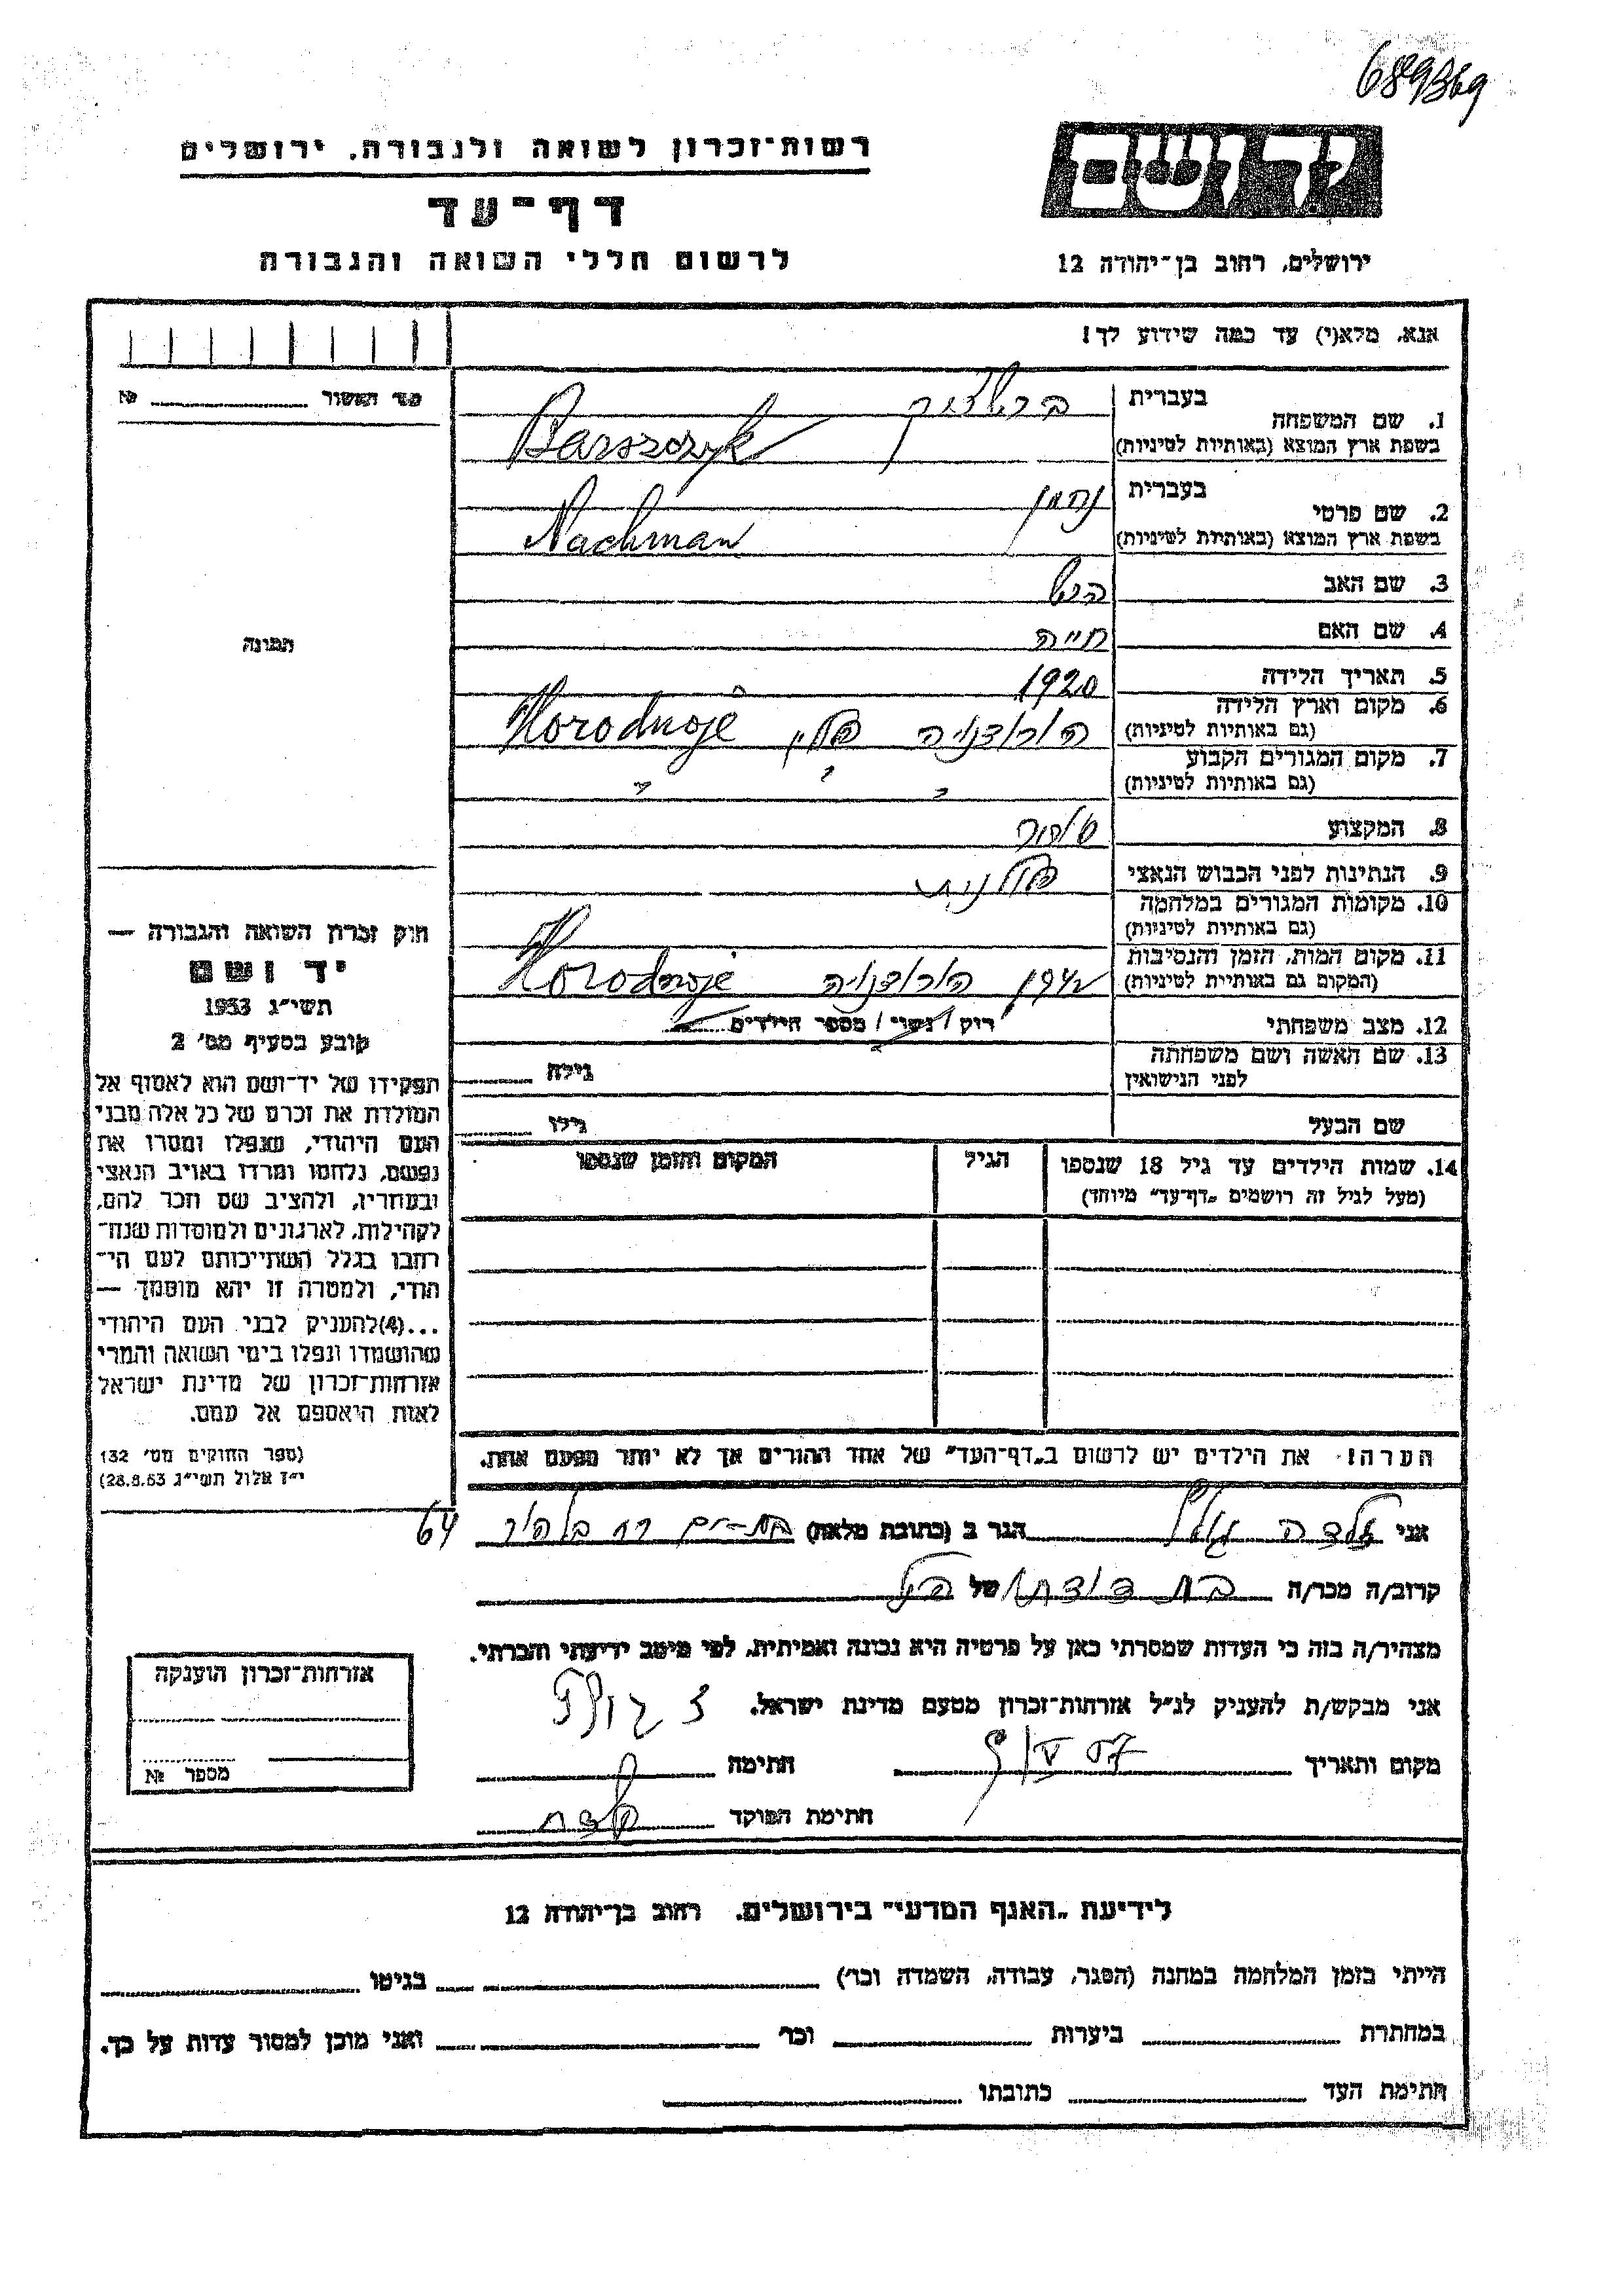 689369
רשות־זכרון לשואה ולגבורה, ירושלים
דף־עד
לרשום חללי השואה והגבורה
יד ושם
ירושלים, רחוב בן־יהודה 12
אנא, מלא(י) עד כמה שידוע לך!
№
1. שם המשפחה בעברית
בשפת ארץ המוצא (באותיות לטיניות) Barszczyk
2. שם פרטי בעברית נחמן
בשפת ארץ המוצא (באותיות לטיניות) Nachman
3. שם האב
4. שם האם חייה
5. תאריך הלידה 1920
6. מקום וארץ הלידה
(גם באותיות לטיניות) הורודנויה פולין Horodnoje
7. מקום המגורים הקבוע
(גם באותיות לטיניות) " " "
8. המקצוע
9. הנתינות לפני הכבוש הנאצי פולנית
10. מקומות המגורים במלחמה
(גם באותיות לטיניות)
11. מקום המות, הזמן והנסיבות
(המקום גם באותיית לטיניות) 1942 הורודנויה Horodnoje
12. מצב משפחתי רווק / נשוי / מספר הילדים
13. שם האשה ושם משפחתה
לפני הנישואין גילה
שם הבעל גילו
14. שמות הילדים עד גיל 18 שנספו
(מעל לגיל זה רושמים „דף־עד” מיוחד)
הגיל
המקום והזמן שנספו
הערה! את הילדים יש לרשום ב„דף־העד” של אחד ההורים אך לא יותר מפעם אחת.
תמונה
חוק זכרון השואה והגבורה —
יד ושם
תשי״ג 1953
קובע בסעיף מס׳ 2
תפקידו של יד־ושם הוא לאסוף אל
המולדת את זכרם של כל אלה מבני
העם היהודי, שנפלו ומסרו את
נפשם, נלחמו ומרדו באויב הנאצי
ובעוזריו, ולהציב שם וזכר להם,
לקהילות, לארגונים ולמוסדות שנח־
רחבו בגלל השתייכותם לעם הי־
הודי, ולמטרה זו יהא מוסמך —
...(4)להעניק לבני העם היהודי
שהושמדו ונפלו בימי השואה והמרי
אזרחות־זכרון של מדינת ישראל
לאות היאספם אל עמם.
(ספר החוקים מס׳ 132
י״ז אלול תשי״ג 28.8.53)
אני זלדה הגר ב (כתובת מלאה) בת-ים 64
קרוב/ה מכר/ה בת דודתו של הנ"ל
מצהיר/ה בזה כי העדות שמסרתי כאן על פרטיה היא נכונה ואמיתית, לפי מיטב ידיעתי והכרתי.
אני מבקש/ת להעניק לנ״ל אזרחות־זכרון מטעם מדינת ישראל.
מקום ותאריך חתימה
חתימת הפוקד
אזרחות־זכרון הוענקה
מספר №
לידיעת „האגף המדעי” בירושלים. רחוב בן־יהודה 12
הייתי בזמן המלחמה במחנה (הסגר, עבודה, השמדה וכו׳) בגיטו
במחתרת ביערות וכו׳ ואני מוכן למסור עדות על כך.
חתימת העד כתובתו